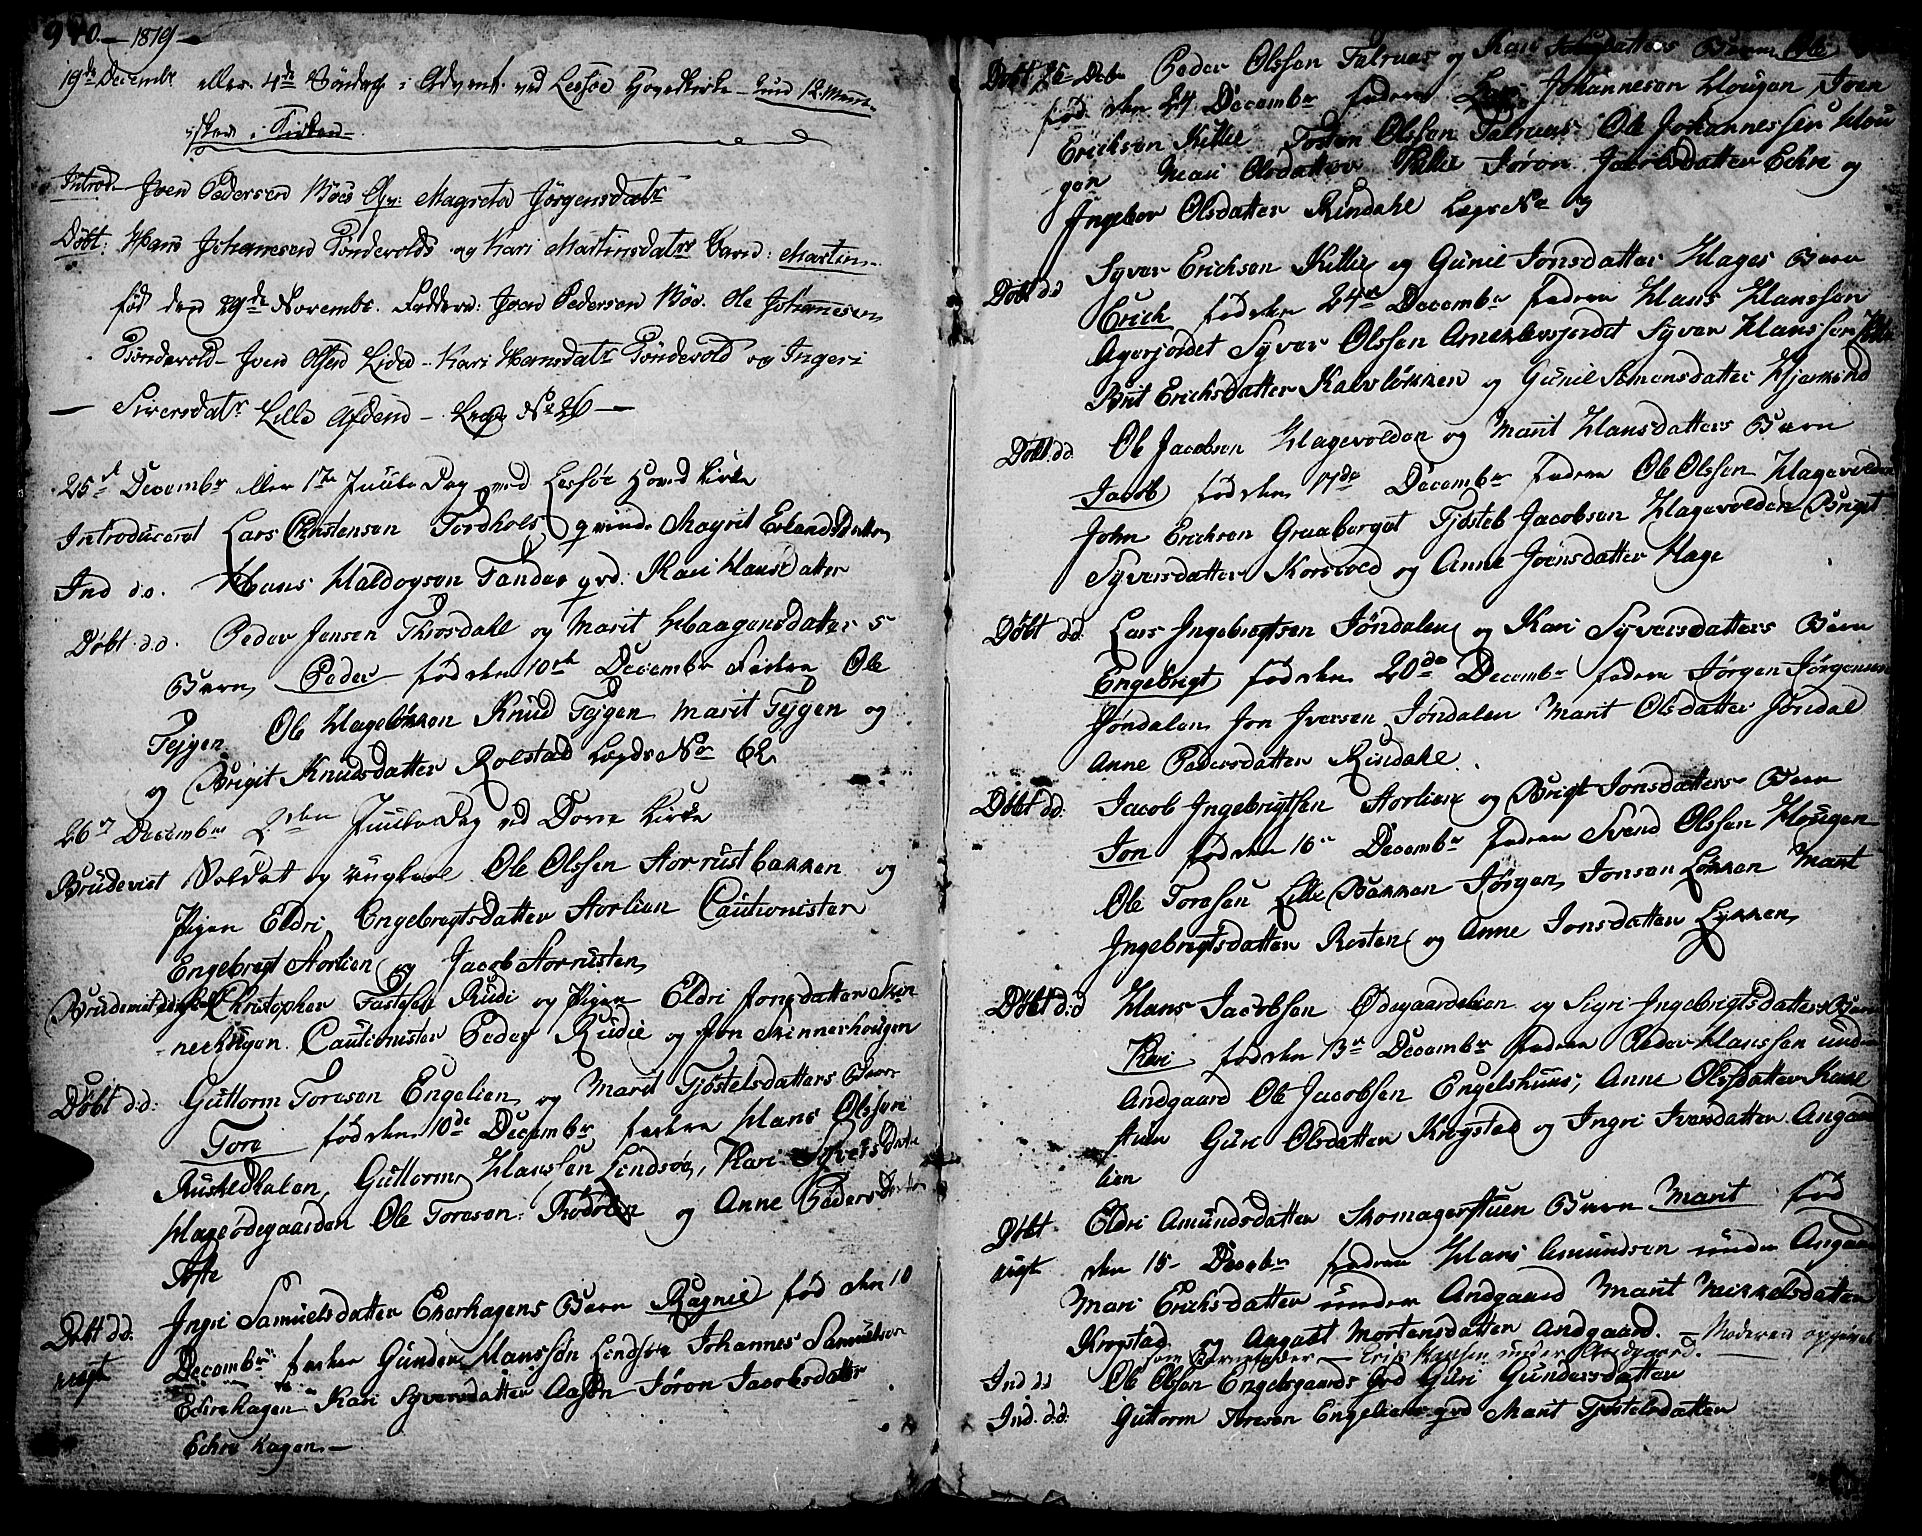 940. — 1819 —
19de Decembr eller 4de Söndag i Advent ved Lessöe Hovedkirke — kun 12 Menne-
sker i Kirken —
Introd. Joen Pedersen Böes Qv: Magrete Jörgensdatr
Döbt: Hans Johannesen Tøndevolds og Kari Martinsdatrs Barn: Martin —
föd den 29de Novembr. Faddere: Joen Pedersen Böe. Ole Johannesen
Tøndevold — Joen Olsen Lided — Kari Hansdatr Tøndevold og Ingeri
— Siversdatr Lille — Lægs No 26 —
25de Decembr eller 1te Juule Dag ved Lessöe Hoved Kirke
Introduceret Lars Christensen Tordhols qvinde Magrit Erlandsdatter
Ind d.o. Hans Haldogson Tande qvd: Kari Hansdatter
Döbt d.d. Peder Jensen Throsdahl og Marit Haagensdatters
Barn Peder föd den 10de Decembr Fadere Ole
Tejgen Ole Hagelökken Knud Tejgen Marit Tejgen og
og Brigit Knudsdatter Rolstad Lægds No 62
26de Decembr 2den Juule Dag ved Dovre Kirke
Brudeviet Soldat og ungkarl Ole Olsen Storrustbakken og
Pigen Eldri Engebregtsdatter Storlien Cautionister
Engebregt Storlien og Jacob Storrusten
Brudeviet d.d. Christopher Tostesen Rudi og Pigen Eldri Jonsdatter Skin-
nerhougen Cautionister Peder Rudie og Jon Skinnerhougen
Döbt d.d: Guttorm Toresen Engelien og Marit Tjöstelsdatters Barn
Tore föd den 10de Decembr fadere Hans Olsen
Ruskedhalen, Guttorm Hanssen Lindsöe, Kari Syversdatter
Hageödegaarden Ole Toresen og Anne Pedersdatter
Tofte
Döbt d.d. Ingri Samuelsdatter Ekrehagens Barn Ragnil föd den 10
uægt Decembr fadere Gunder Hanssön Lindsöe Johannes Samuelsen
Eckrehagen Kari Syversdatter Jöron Jacobsdatter
Eckre hagen —
Döbt 25 Debr Peder Olssen Talruas og Kari Barn
föd den 24 Decembr fadere Johannesen Hougen Joen
Erichsen Killie Tosten Olssen Talruas Ole Johannessen Hou
gen Mari Olsdatter Killie Jöron Jacobsdatter Eckre og
Ingebor Olsdatter Rindahl Lægs No
Döbt dd Syver Erichsen Killie og Gunil Jonsdatter Hages Barn
Erich föd den 24de Decembr fadere Hans Hanssen
Agerjordet Syver Olssen Syver Hanssen
Brit Erichsdatter Kalvlökken og Gunil Simensdatter Hjerkind
Döbt. dd. Ole Jacobsen Hagevolden og Marit Hansdatters Barn
Jacob föd den 17de Decembr fadere Ole Olssen Hagevolden
John Erichsen Graaberget Tjösteb Jacobsen Hagevolden Brigt
Syversdatter Korsvold og Anne Joensdatter Hage
Döbt dd. Lars Ingebregtsen Jöndalen og Kari Syversdatters Barn
Engebrigt föd den 20de Decembr fadere Jörgen Jörgensen
Jöndalen Jon Iversen Jöndalen Marit Olsdatter Jöndal
Anne Pedersdatter Rindahl.
Döbt dd. Jacob Ingebrigtsen Storlien og Brigt Jonsdatters Barn
Jon föd den 16de Decembr fadere Svend Olssen Hougen
Ole Toresen Lille Bakken Jörgen Jonsen Lökken Marit
Ingebregtsdatter Rosten og Anne Jonsdatter Lykken
Döbt d:d Hans Jacobsen Ödegaardslien og Sigri Ingebrigtsdatters Barn
Kari föd den 13de Decembr fadere Peder Hanssen under
Andgaard Ole Jacobsen Engelshuus, Anne Olsdatter Karl
stuen Guri Olsdatter Krogstad og Ingri Iversdatter Angaard
lien
Döbt Eldri Amundsdatter Skomagerstuen Barn Marit föd
uægt den 15 Decebr fadere Hans Amundsen under Angaard
Mari Erichsdatter under Andgaard Marit Mikkelsdatter
Krogstad og Aagaat Mortensdatter Andgaard. — Moderen opgivet
som Barnefader — Erik Hansen under Andgaard.
Ind dd Ole Olssen Engelsgaards qvd Guri Gundersdatter
Ind. d.d. Guttorm Toresen Engeliens qvd Marit Tjöstelsdatter